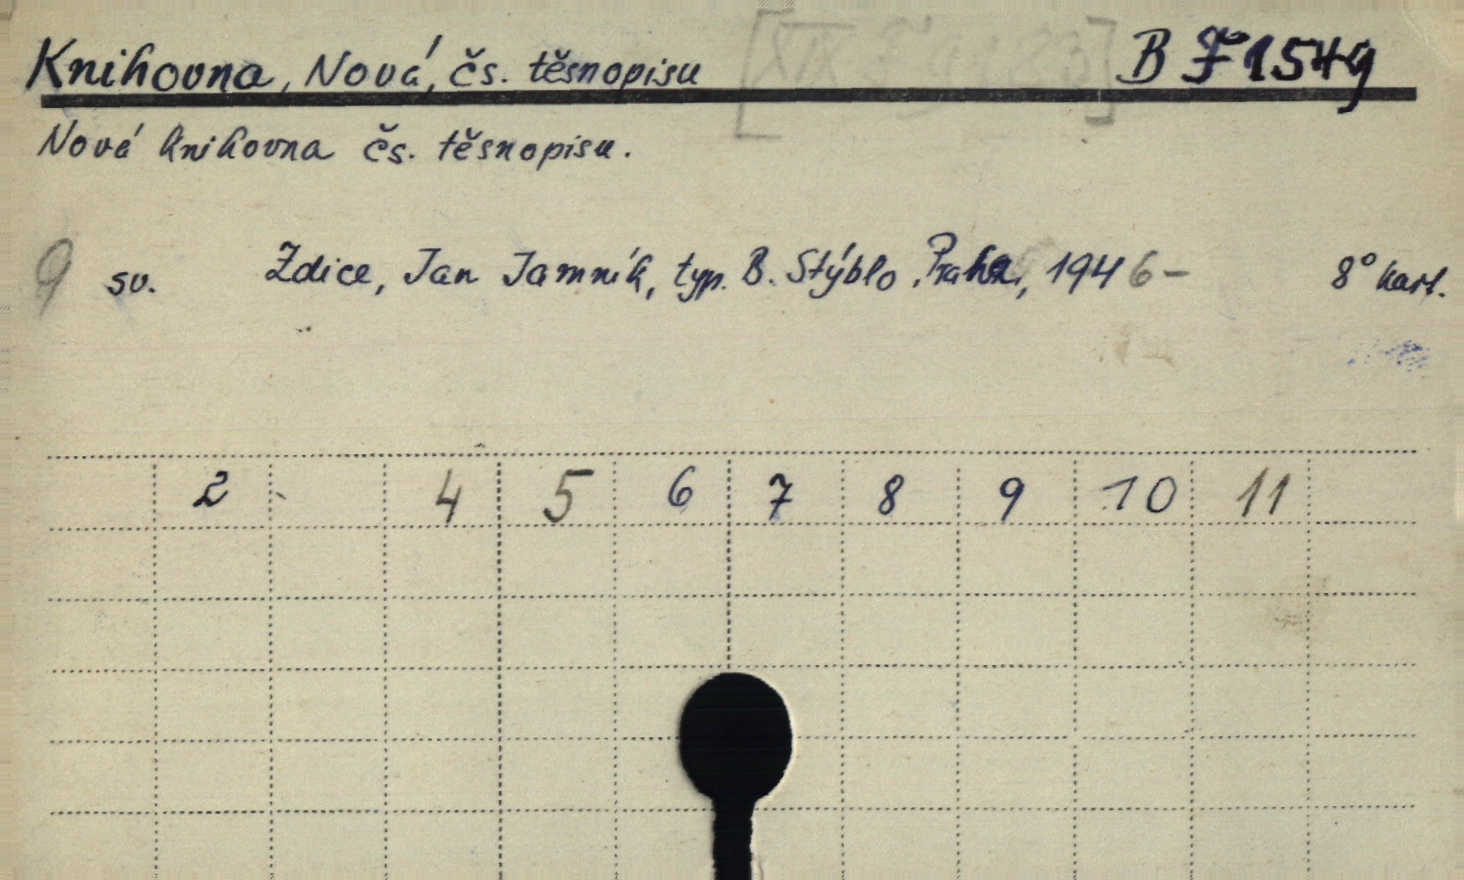 Knihovna, Nová, čs. těsnopisu B F 1549
Nová knihovna čs. těsnopisu.
9 sv. Zdice, Jan Jamník, typ. B. Stýblo, Praha, 1946- 8° kart.
2 4 5 6 7 8 9 10 11